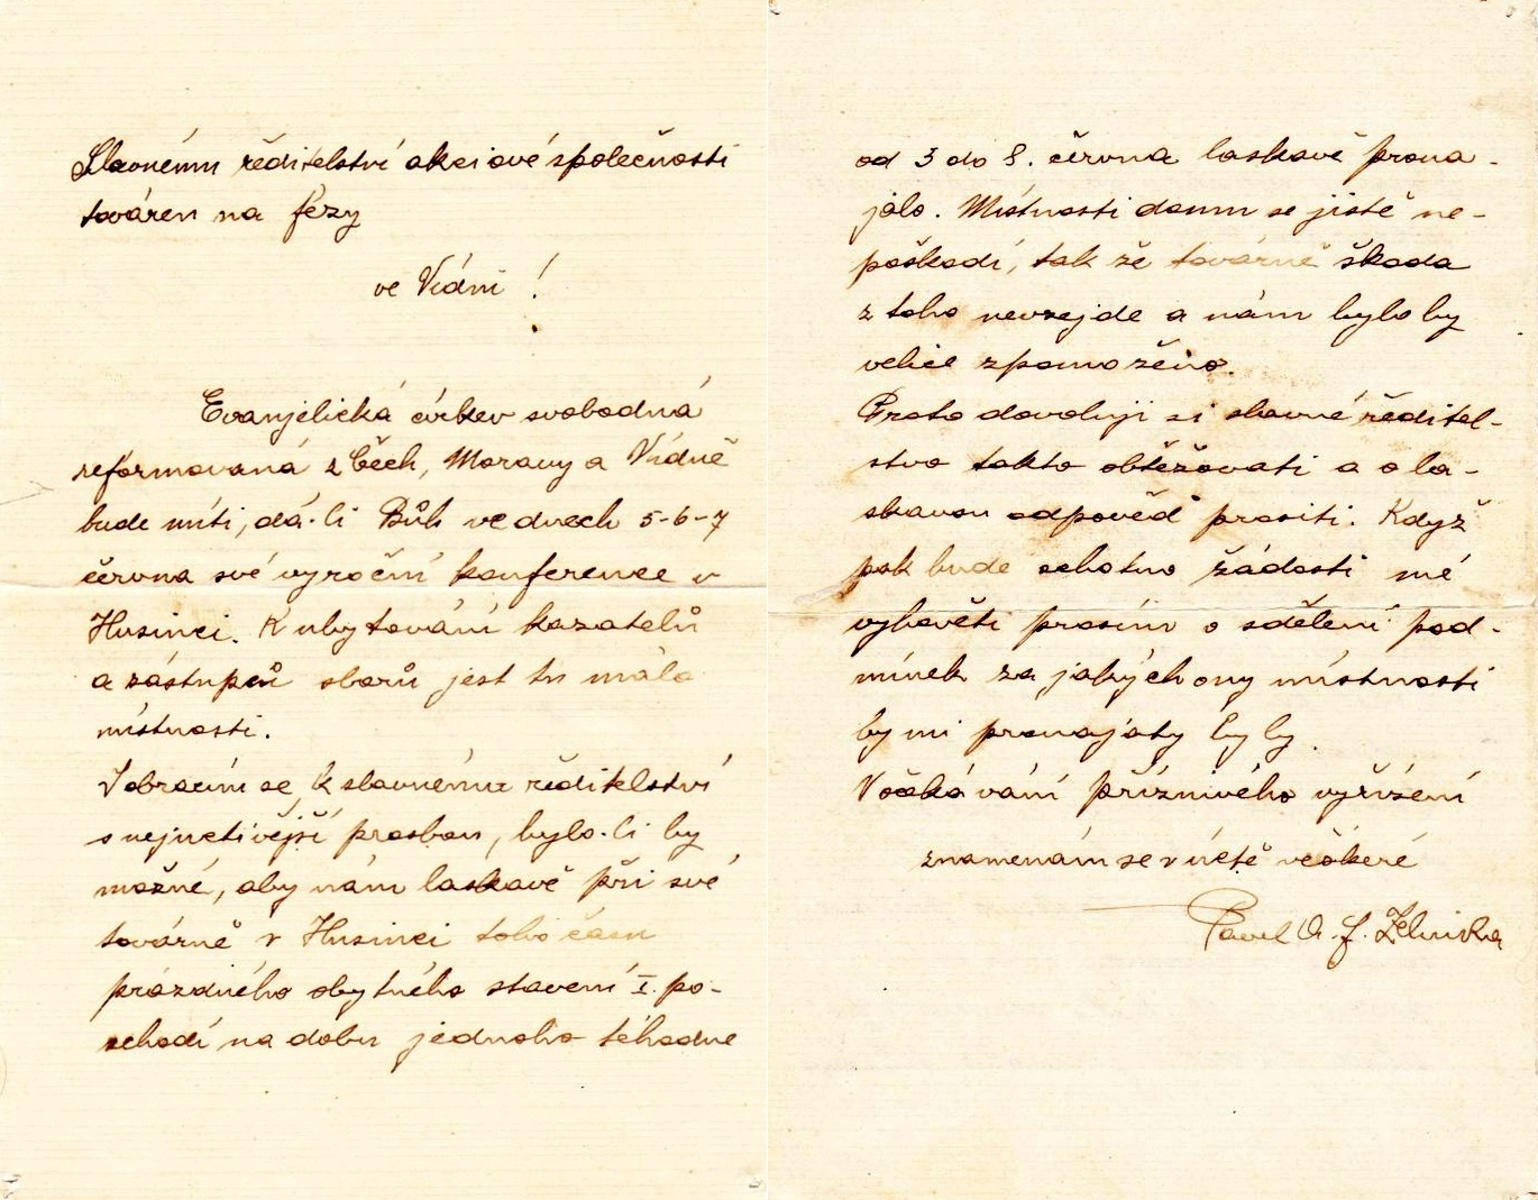 Slavnému ředitelství akciové společnosti
továren na fezy
ve Vídni!
Evanjelická církev svobodná
reformovaná z Čech, Moravy a Vídně
bude míti, dá-li Bůh ve dnech 5-6-7
června své vyroční konference v
Husinci. K ubytování kazatelů
a zástupců sborů jest tu málo
místností.
I obracím se k slavnému ředitelství
s nejuctivější prosbou, bylo-li by
možné, aby nám laskavě při své
továrně v Husinci toho času
prázdného obytného stavení I. po-
schodí na dobu jednoho téhodne
od 3 do 8. června laskavě prona-
jalo. Místnosti domu se jistě ne-
poškodí, tak že továrně škoda
z toho nevzejde a nám bylo by
velice zpomoženo.
Proto dovoluji si slavné ředitel-
stvo takto obtěžovati a o la-
skavou odpověď prositi. Když
pak bude ochotno žádosti mé
vyhověti prosím o sdělení pod-
mínek za jakých ony místnosti
by mi pronajaty byly.
V očekávání příznivého vyřízení
znamenám se v úctě veškeré
Pavel A. J. Zelinka